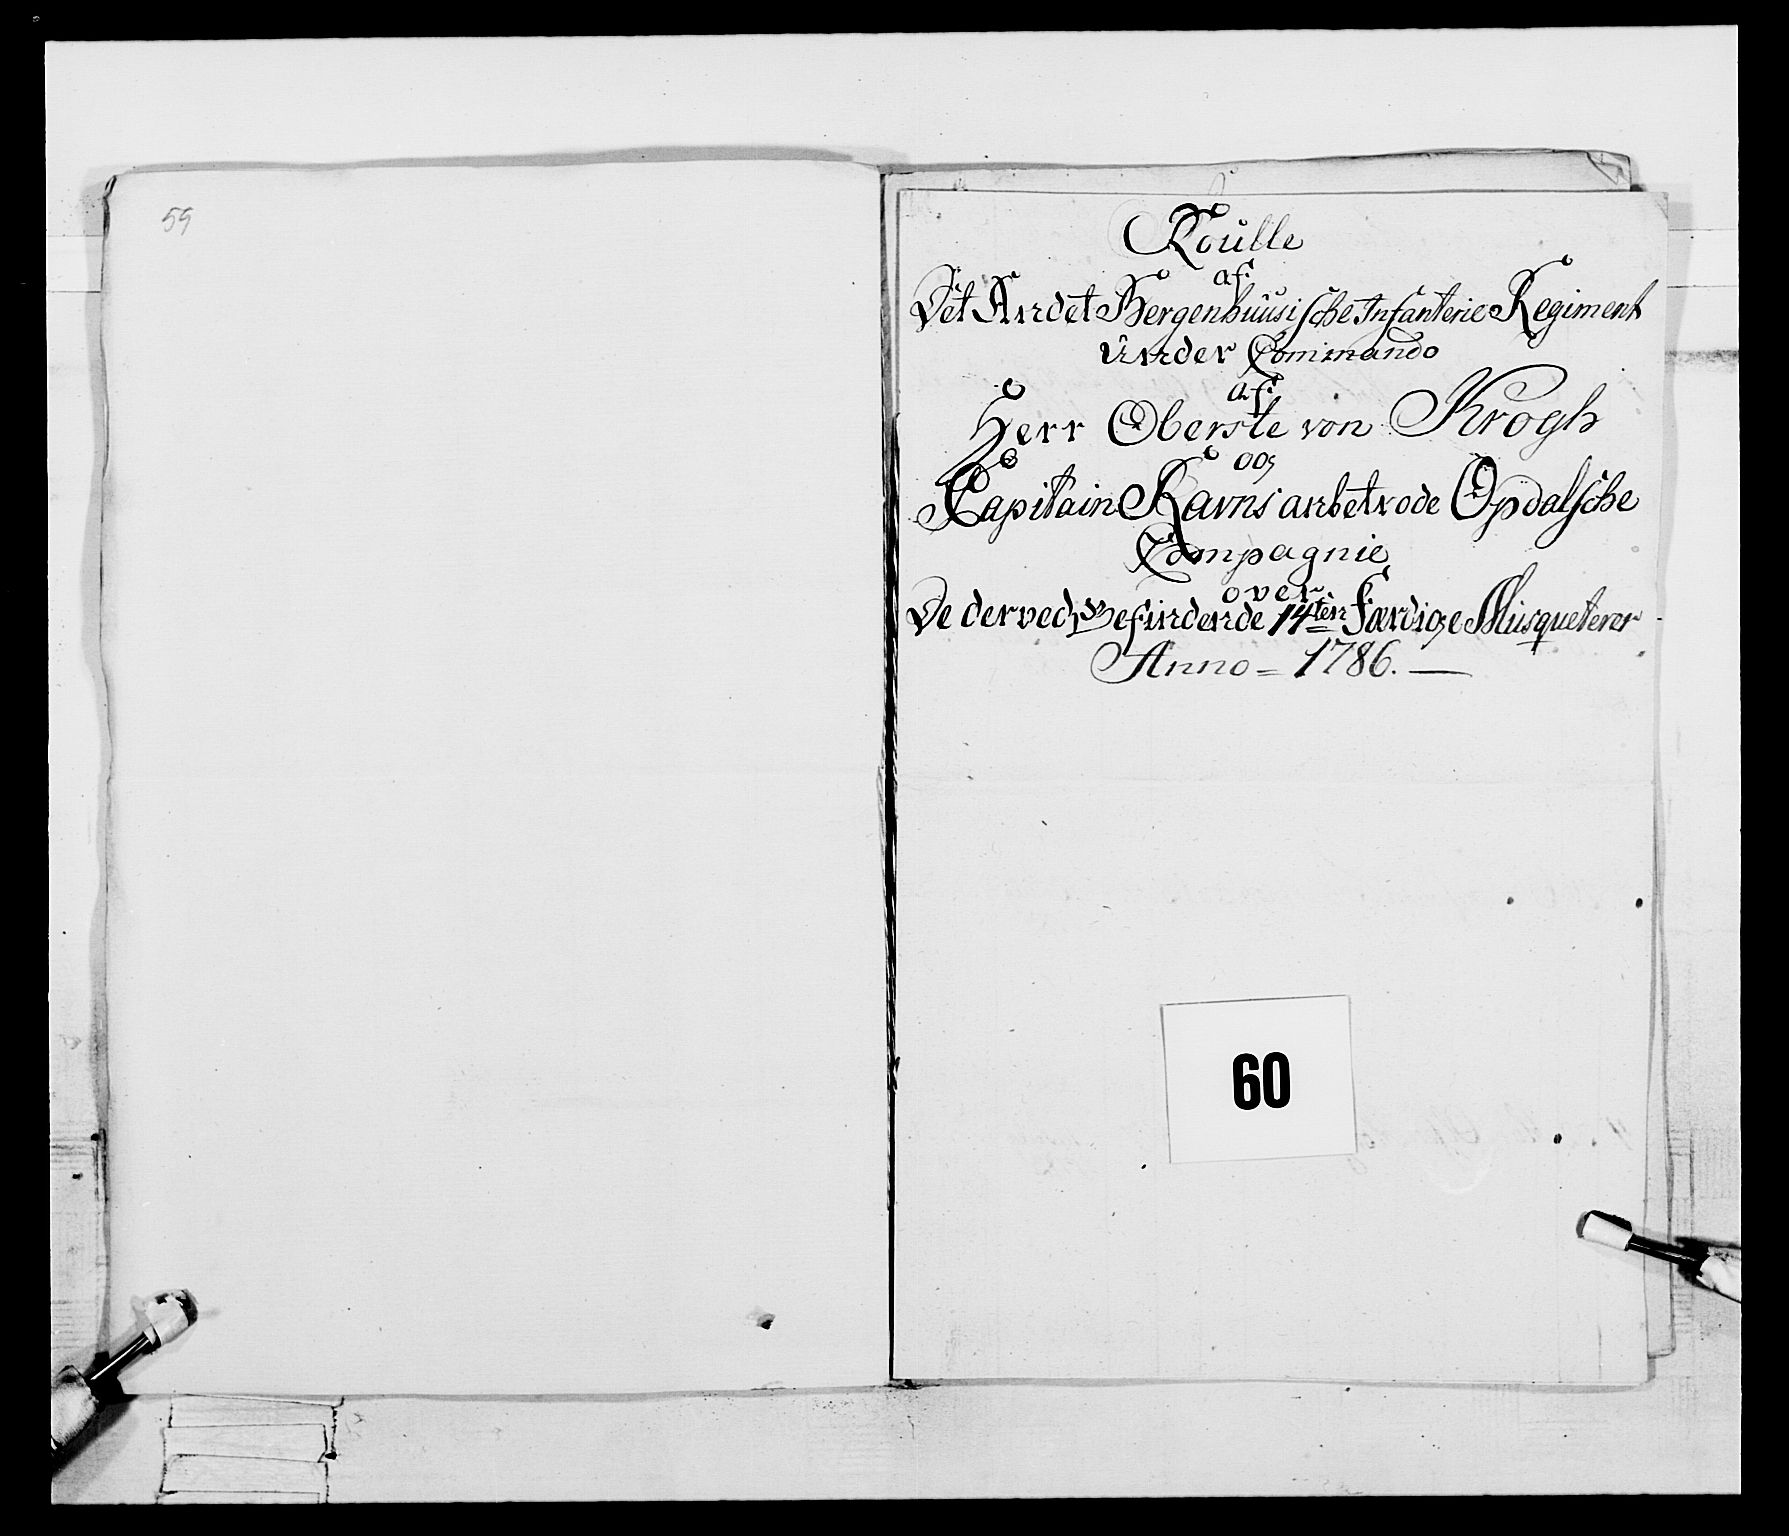 59
Roulle
af
Det Andet Bergenhuusische Infanterie Regiment
under Commando
af
Herr Oberste von Krogh
og
Capitain Ravns anbetrode Opdalsche
Compagnie
over
De derved Befindende 14ten færdige Musqueterer
Anno = 1786. —
60